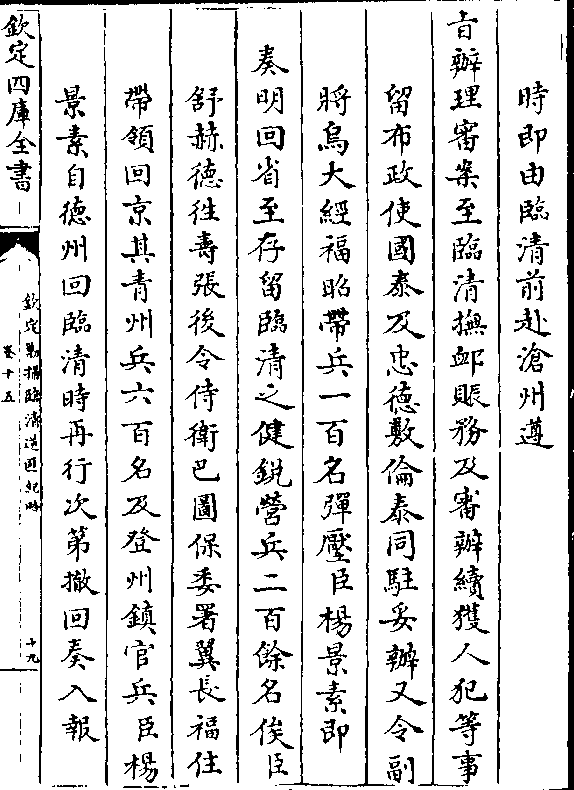 時即由臨清前赴滄州遵
旨辦理審案至臨清撫䘏賑務及審辦續獲人犯等事
留布政使國泰及忠德敷倫泰同駐妥辦又令副
將烏大經福昭帶兵一百名彈壓臣楊景素即
奏明回省至存留臨清之健銳營兵二百餘名俟臣
舒赫德徃壽張後令侍衛巴圖保委署翼長福住
帶領回京其青州兵六百名及登州鎮官兵臣楊
景素自德州回臨清時再行次第撤回奏入報
欽定四庫全書
欽定勦捕臨清逆匪紀略
卷十五
十九